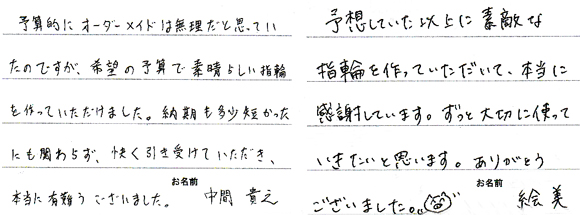 予算的にオーダーメイドは無理だと思ってい
たのですが、希望の予算で素晴らしい指輪
を作っていただけました。納期も多少短かった
にも関わらず、快く引き受けていただき、
本当に有難うございました。
お名前
中間 貴之
予想していた以上に素敵な
指輪を作っていただいて、本当に
感謝しています。ずっと大切に使って
いきたいと思います。ありがとう
ございました。
お名前
絵美